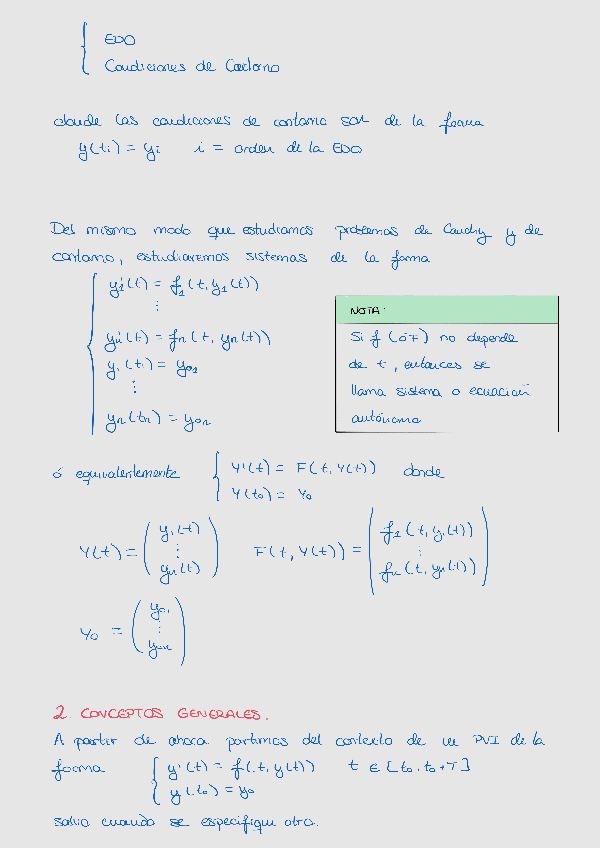 { EDO
Condiciones de Contorno
donde las condiciones de contorno son de la forma
y(ti) = yi i = orden de la EDO
Del mismo modo que estudiamos problemas de Cauchy y de
contorno, estudiaremos sistemas de la forma
{ y1'(t) = f1(t, y1(t))
⋮
yn'(t) = fn(t, yn(t))
y1(t1) = y01
⋮
yn(tn) = y0n
NOTA:
Si f (ó F) no depende
de t, entonces se
llama sistema o ecuación
autónoma
ó equivalentemente { Y'(t) = F(t, Y(t)) donde
Y(t0) = Y0
Y(t) = (y1(t) ⋮ yn(t)) F(t, Y(t)) = (f1(t, y1(t)) ⋮ fn(t, yn(t)))
Y0 = (y01 ⋮ y0n)
2 CONCEPTOS GENERALES.
A partir de ahora partimos del contexto de un PVI de la
forma { y'(t) = f(t, y(t)) t ∈ [t0, t0+T]
y(t0) = y0
salvo cuando se especifique otro.